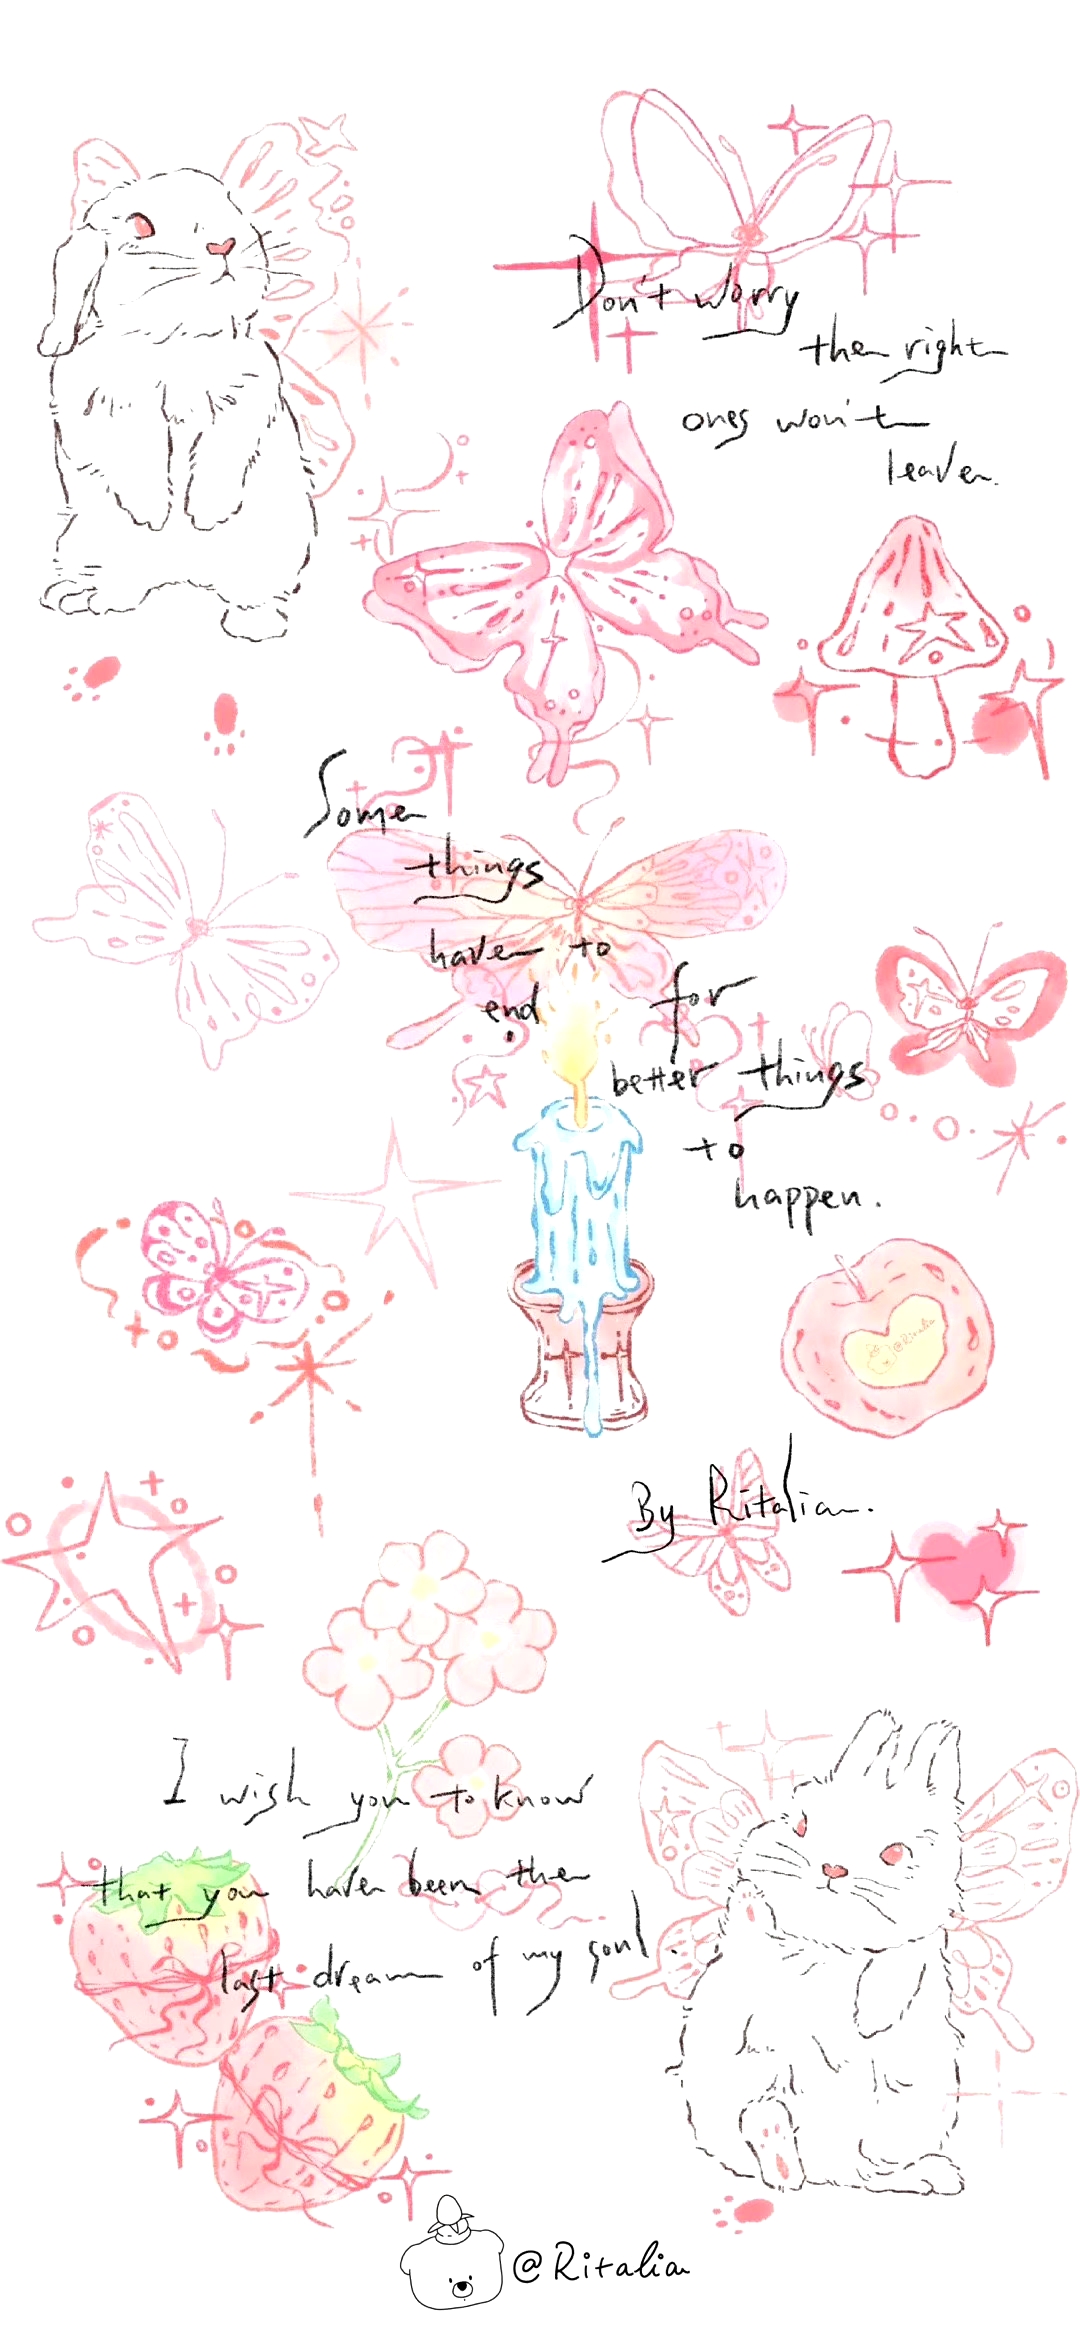 Don't worry
the right
ones won't
leave.
Some
things
have to
end
for
better things
to
happen.
@Ritalia
By Ritalia.
I wish you to know
that you have been the
last dream of my soul.
@Ritalia